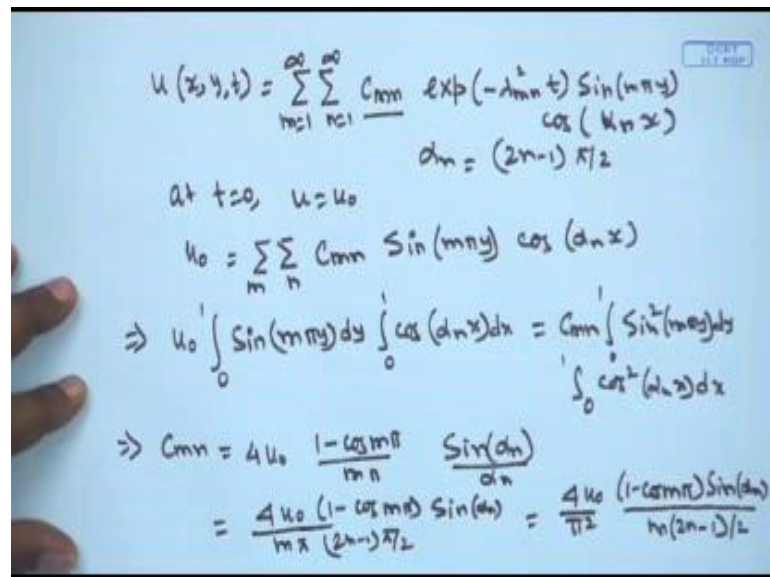 u(x,y,t) = ∞Σm=1 ∞Σn=1 Cmn exp(-λ²mn t) Sin(mπy)
cos(αn x)
αn = (2n-1) π/2
at t=0, u=u0
u0 = Σm Σn Cmn Sin(mπy) cos(αn x)
⇒ u0 ∫₀¹ Sin(mπy)dy ∫₀¹ cos(αn x)dx = Cmn ∫₀¹ Sin²(mπy)dy
∫₀¹ cos²(αn x)dx
⇒ Cmn = 4u0 (1-cosmπ)/(mπ) Sin(αn)/αn
= 4u0 (1-cosmπ) Sin(αn) / (mπ (2n-1) π/2) = 4u0/π2 (1-cosmπ)Sin(αn) / (m(2n-1)/2)